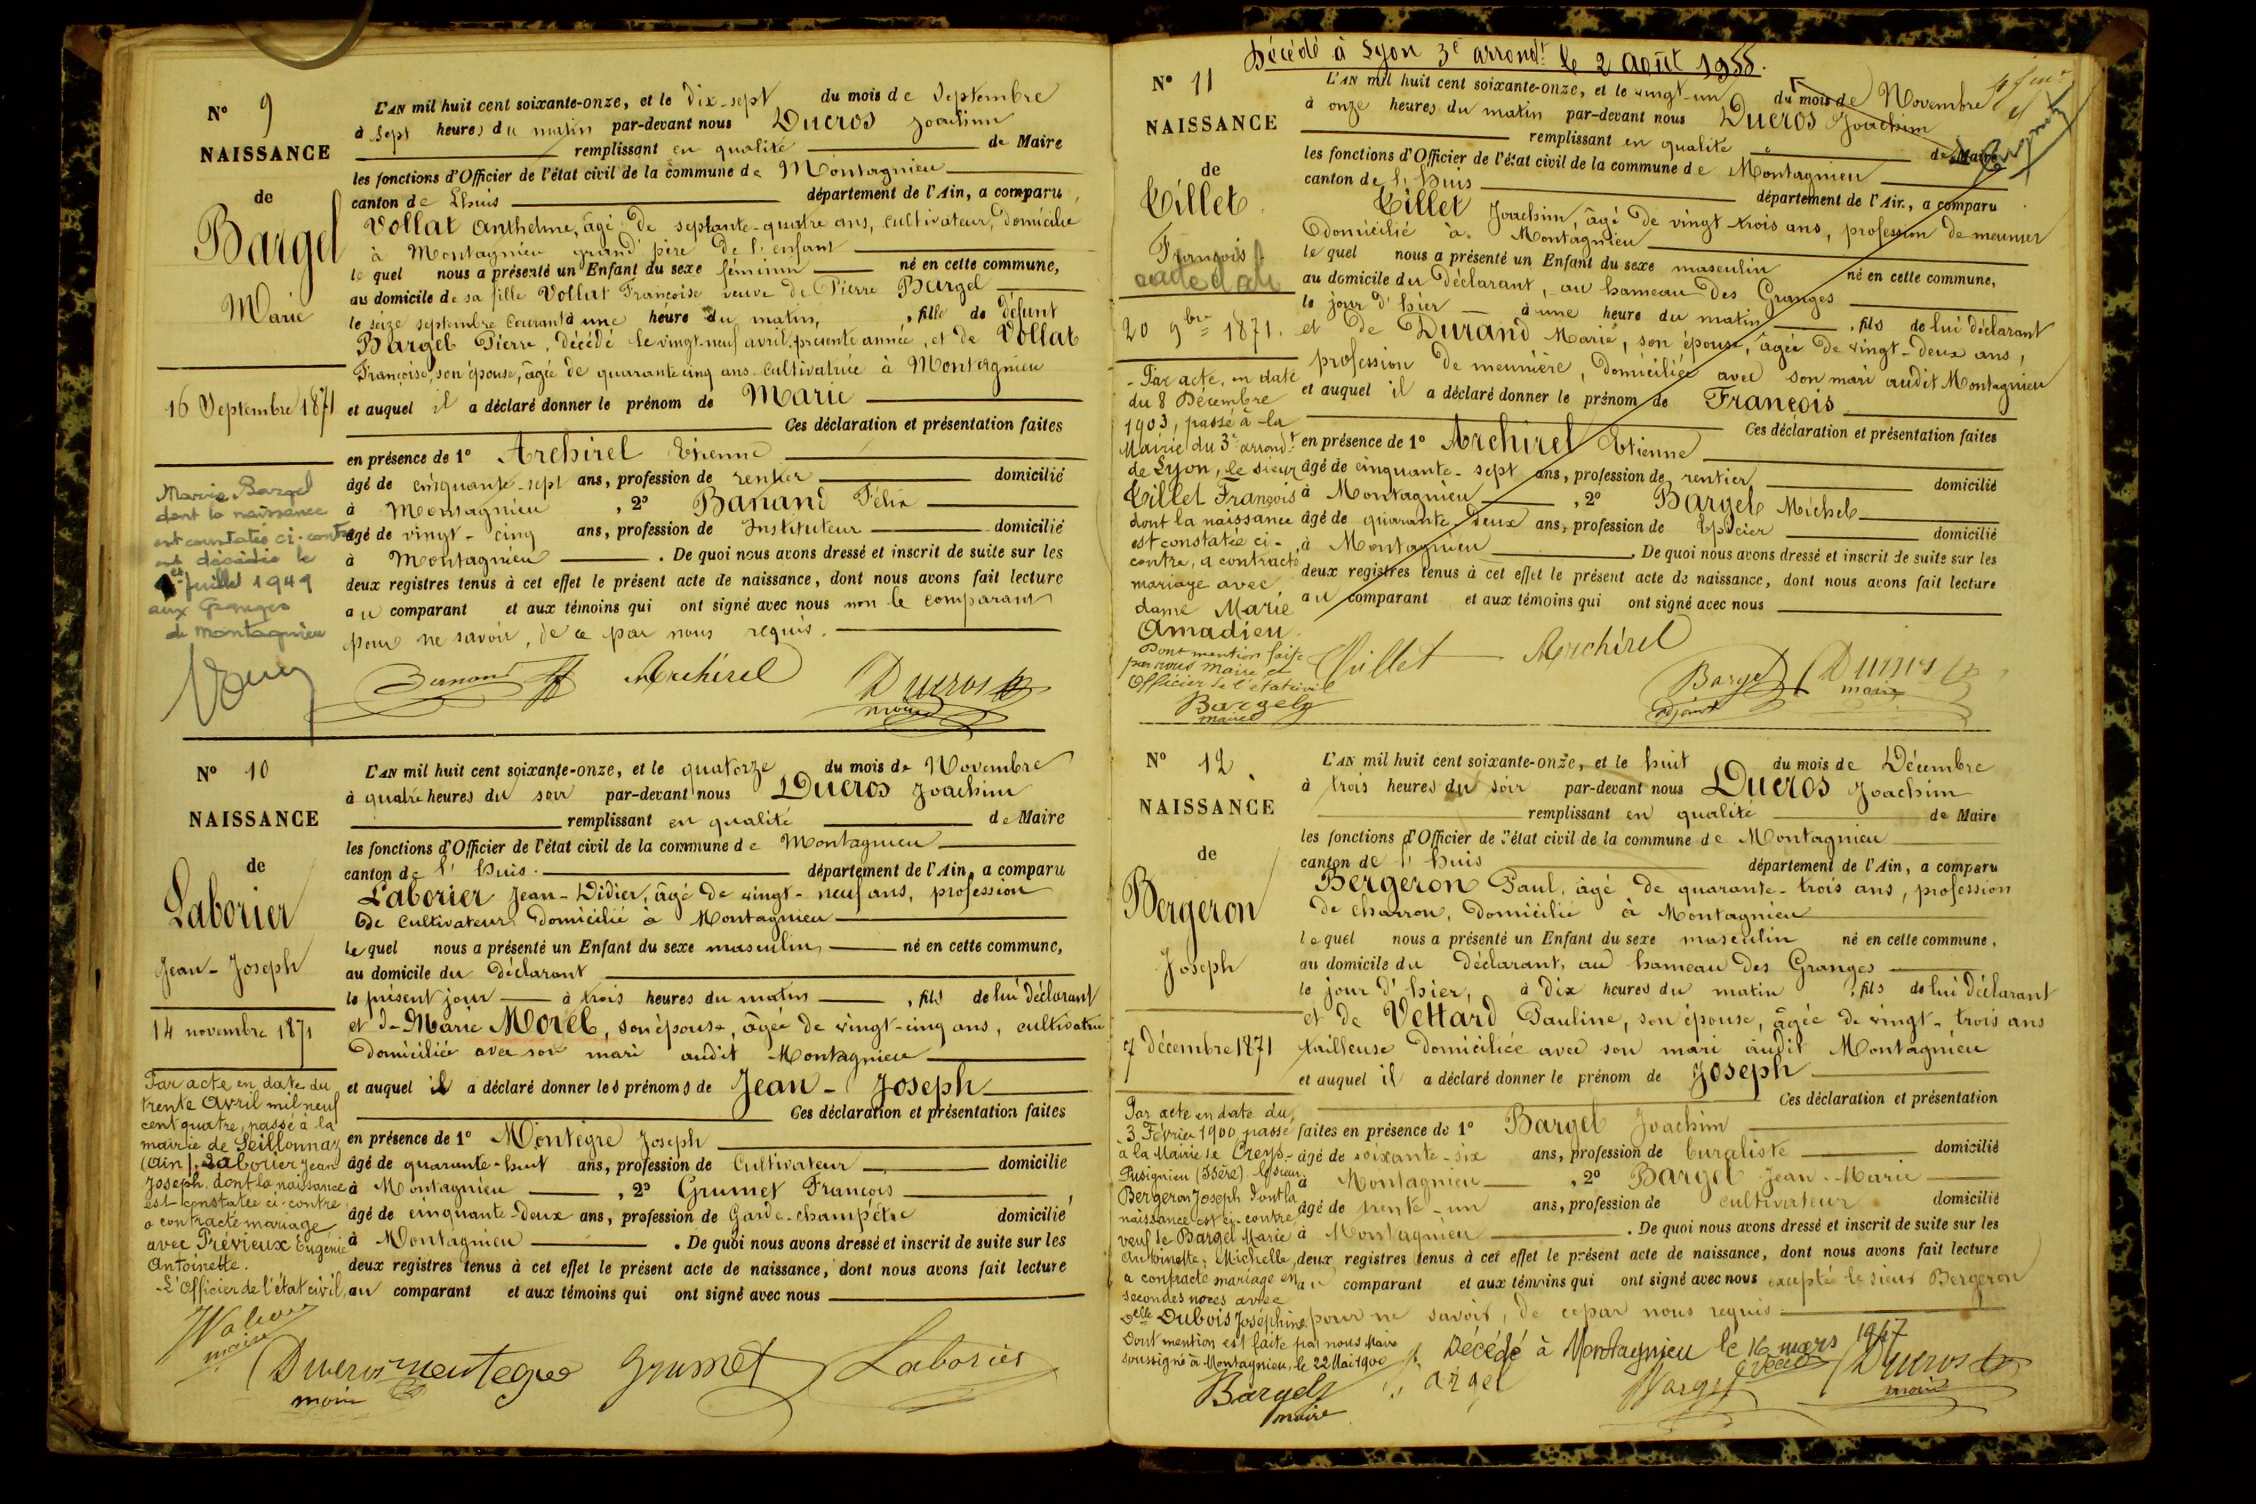 N° 9
NAISSANCE
de
Bargel
Marie
16 Septembre 1871
Marie Bargel
dont la naissance
est constatée ci-contre
est décédée le
1er Juillet 1949
aux Granges
de Montagnieu
L'AN mil huit cent soixante-onze, et le dix-sept du mois de Septembre
à sept heures du matin par-devant nous Ducros Joachim
remplissant en qualité de Maire
les fonctions d'Officier de l'état civil de la commune de Montagnieu
canton de Lhuis département de l'Ain, a comparu
Vollat Anthelme, âgé de septante-quatre ans, cultivateur, domicilié
à Montagnieu grand'père de l'enfant
lequel nous a présenté un Enfant du sexe féminin né en cette commune,
au domicile de sa fille Vollat Françoise veuve de Pierre Bargel
le seize septembre courant à une heure du matin, fille de défunt
Bargel Pierre, décédé le vingt-neuf avril, présente année, et de Vollat
Françoise, son épouse, âgée de quarante cinq ans cultivatrice à Montagnieu
et auquel il a déclaré donner le prénom de Marie
Ces déclaration et présentation faites
en présence de 1° Archirel Etienne
âgé de cinquante-sept ans, profession de rentier domicilié
à Montagnieu, 2° Banand Félix
âgé de vingt-cinq ans, profession de Instituteur domicilié
à Montagnieu. De quoi nous avons dressé et inscrit de suite sur les
deux registres tenus à cet effet le présent acte de naissance, dont nous avons fait lecture
au comparant et aux témoins qui ont signé avec nous non le comparant
pour ne savoir, de ce par nous requis.
Archirel Ducros
maire
N° 10
NAISSANCE
de
Laborier
Jean-Joseph
14 novembre 1871
Par acte en date du
trente Avril mil neuf
cent quatre, passé à la
mairie de Seillonnaz
(Ain), Laborier Jean
Joseph, dont la naissance
est constatée ci-contre
a contracté mariage
avec Prévieux Eugénie
Antoinette.
L'Officier de l'état civil,
maire
L'AN mil huit cent soixante-onze, et le quatorze du mois de Novembre
à quatre heures du soir par-devant nous Ducros Joachim
remplissant en qualité de Maire
les fonctions d'Officier de l'état civil de la commune de Montagnieu
canton de l'huis. département de l'Ain, a comparu
Laborier Jean-Didier, âgé de vingt-neuf ans, profession
de cultivateur, domicilié à Montagnieu
lequel nous a présenté un Enfant du sexe masculin, né en cette commune,
au domicile du déclarant
le présent jour à trois heures du matin, fils de lui déclarant
et de Marie Morel, son épouse, âgée de vingt-cinq ans, cultivatrice
domiciliée avec son mari audit Montagnieu
et auquel il a déclaré donner les prénoms de Jean-Joseph
Ces déclaration et présentation faites
en présence de 1° Montegre Joseph
âgé de quarante-huit ans, profession de Cultivateur domicilié
à Montagnieu, 2° Grumet François
âgé de cinquante-deux ans, profession de Garde-champêtre domicilié
à Montagnieu. De quoi nous avons dressé et inscrit de suite sur les
deux registres tenus à cet effet le présent acte de naissance, dont nous avons fait lecture
au comparant et aux témoins qui ont signé avec nous
Ducros montegre Grumet Laborier
maire
Décédé à Lyon 3e arrondt le 2 août 1955.
N° 11
NAISSANCE
de
Tillet
François
20 9bre 1871.
Par acte, en date
du 8 Décembre
1903, passé à la
Mairie du 3e arrondt
de Lyon, le sieur
Tillet François
dont la naissance
est constatée ci-
contre, a contracté
mariage avec
dame Marie
Amadieu.
Dont mention faite
par nous Maire et
Officier de l'état civil
Bargel
maire
L'AN mil huit cent soixante-onze, et le vingt-un du mois de Novembre
à onze heures du matin par-devant nous Ducros Joachim
remplissant en qualité de Maire
les fonctions d'Officier de l'état civil de la commune de Montagnieu
canton de l'huis département de l'Ain, a comparu
Tillet Joachim, âgé de vingt-trois ans, profession de meunier
domicilié à Montagnieu
lequel nous a présenté un Enfant du sexe masculin né en cette commune,
au domicile du déclarant, au hameau des Granges
le jour d'hier à une heure du matin, fils de lui déclarant
et de Durand Marie, son épouse, âgée de vingt-deux ans,
profession de meunière, domiciliée avec son mari audit Montagnieu
et auquel il a déclaré donner le prénom de François
Ces déclaration et présentation faites
en présence de 1° Archirel Etienne
âgé de cinquante-sept ans, profession de rentier domicilié
à Montagnieu, 2° Bargel Michel
âgé de quarante-deux ans, profession de Epicier domicilié
à Montagnieu. De quoi nous avons dressé et inscrit de suite sur les
deux registres tenus à cet effet le présent acte de naissance, dont nous avons fait lecture
au comparant et aux témoins qui ont signé avec nous
Tillet Archirel Bargel Ducros
adjoint maire
N° 12
NAISSANCE
de
Bergeron
Joseph
7 décembre 1871
Par acte en date du
3 Février 1900 passé
à la Mairie de Creys-
Pusignieu (Isère) le sieur
Bergeron Joseph dont la
naissance est ci-contre,
veuf de Bargel Marie
Antoinette, Michelle
a contracté mariage en
secondes noces avec
Delle Dubois Joséphine
Dont mention est faite par nous Maire
soussigné à Montagnieu, le 22 Mai 1900
Bargel
maire
L'AN mil huit cent soixante-onze, et le huit du mois de Décembre
à trois heures du soir par-devant nous Ducros Joachim
remplissant en qualité de Maire
les fonctions d'Officier de l'état civil de la commune de Montagnieu
canton de l'huis département de l'Ain, a comparu
Bergeron Paul, âgé de quarante-trois ans, profession
de charron, domicilié à Montagnieu
lequel nous a présenté un Enfant du sexe masculin né en cette commune,
au domicile du déclarant, au hameau des Granges
le jour d'hier, à dix heures du matin, fils de lui déclarant
et de Vettard Pauline, son épouse, âgée de vingt-trois ans
tailleuse domiciliée avec son mari audit Montagnieu
et auquel il a déclaré donner le prénom de Joseph
Ces déclaration et présentation
faites en présence de 1° Bargel Joachim
âgé de soixante-six ans, profession de buraliste domicilié
à Montagnieu, 2° Bargel Jean-Marie
âgé de trente-un ans, profession de cultivateur domicilié
à Montagnieu. De quoi nous avons dressé et inscrit de suite sur les
deux registres tenus à cet effet le présent acte de naissance, dont nous avons fait lecture
au comparant et aux témoins qui ont signé avec nous excepté le sieur Bergeron
pour ne savoir, de ce par nous requis.
Décédé à Montagnieu le 16 mars 1947
Bargel Ducros
maire